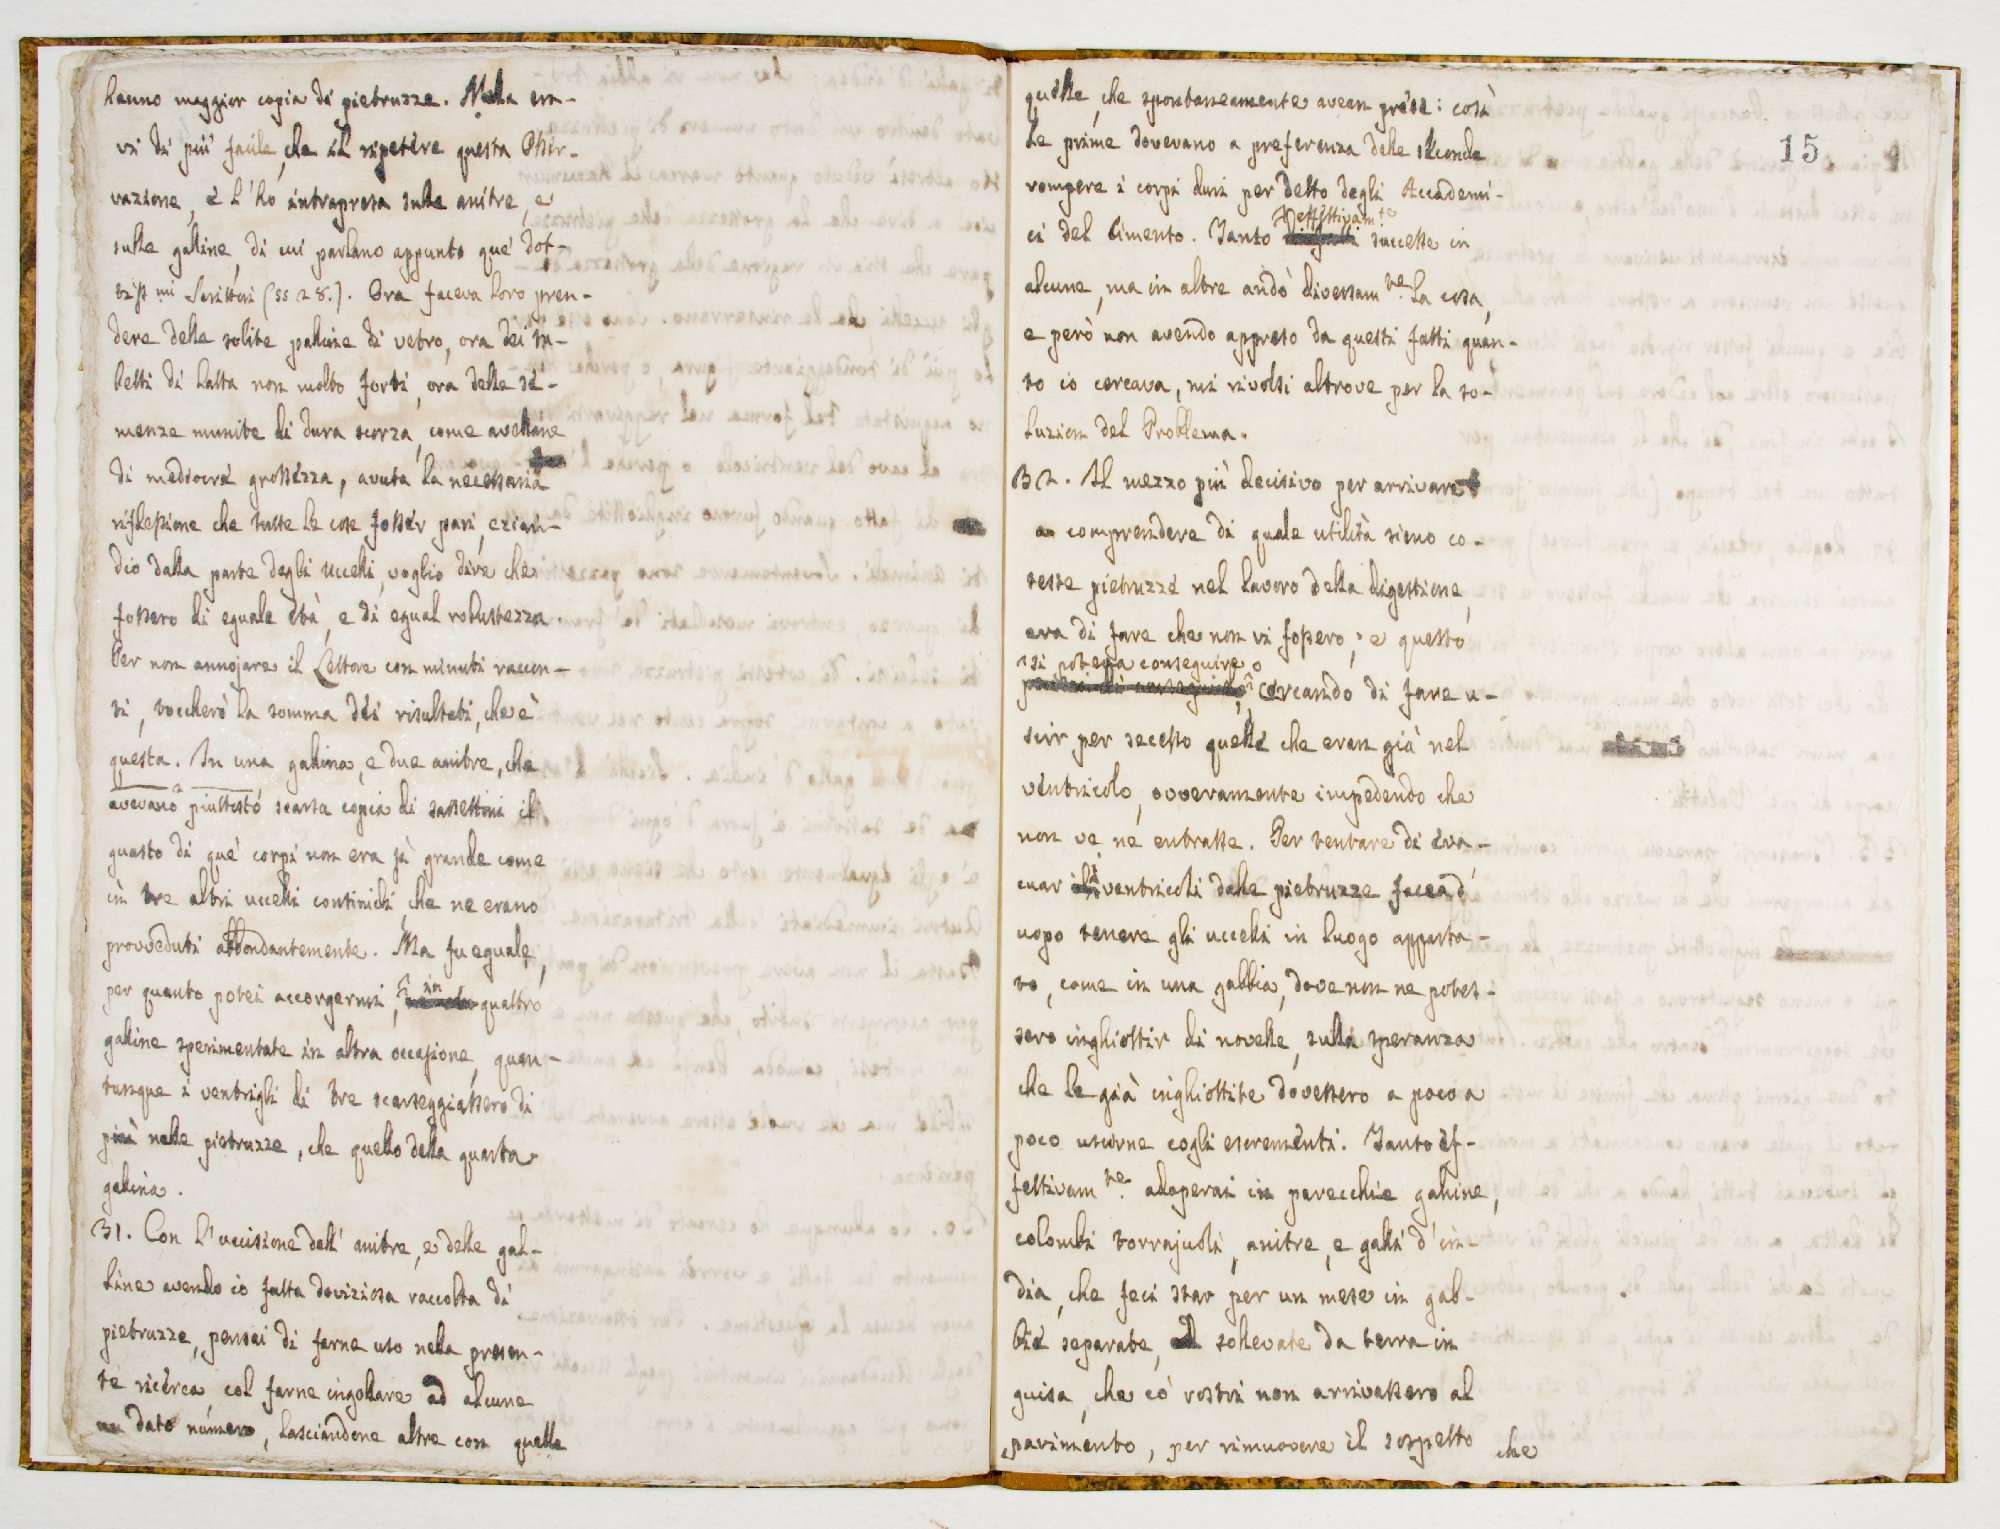 hanno maggior copia di pietruzze. Nulla eravi
vi di più facile, che il ripetere questa Osser-
vazione, e l'ho intrapresa sulle anitre, e
sulle galline, di cui parlano appunto que' dot-
tissmi Scrittori (§§ 28.). Ora faceva loro pren-
dere delle solite palline di vetro, ora dei tu-
betti di latta non molto forti, ora delle se-
menze munite di dura scorza, come avellane
di mediocre grossezza, avuta la necessaria
riflessione che tutte le cose fosser pari, ezian-
dio dalla parte degli Uccelli, voglio dire che
fossero di eguale età, e di egual robustezza.
Per non annojare il Lettore con minuti raccon-
ti, toccherò la somma dei risultati, che è
questa. In una gallina, e due anitre, che
avevano piuttosto scarsa copia di sassettini il
guasto di que' corpi non era sì grande come
in tre altri uccelli continichi, che ne erano
provveduti abbondantemente. Ma fu eguale,
per quanto potei accorgermi, in quattro
galline sperimentate in altra occasione, quan-
tunque i ventrigli di tre scarseggiassero di
più nelle pietruzze, che quello della quarta
gallina.
31. Con l'uccisione dell' anitre, e delle gal-
line avendo io fatta doviziosa raccolta di
pietruzze, pensai di farne uso nella presen-
te ricerca, col farne ingollare ad alcune
un dato numero, lasciandone altre con quelle
15
quelle, che spontaneamente avean prese: così
le prime dovevano a preferenza delle seconde
rompere i corpi duri per detto degli Accademi-
ci del Cimento. Tanto effettivamte successe in
alcune, ma in altre andò diversamte la cosa,
e però non avendo appreso da questi fatti quan-
to io cercava, mi rivolsi altrove per la so-
luzion del Problema.
32. Il mezzo più decisivo per arrivare
a comprendere di quale utilità sieno co-
teste pietruzze nel lavoro della digestione,
era di fare che non vi fossero; e questo
si poteva conseguire o
cercando di fare u-
scir per secesso quelle che eran già nel
ventricolo, ovveramente impedendo che
non ve ne entrasse. Per tentare di eva-
cuar li ventricoli dalle pietruzze facea d'
uopo tenere gli uccelli in luogo apparta-
to, come in una gabbia, dove non ne potes-
sero inghiottir di novelle, sulla speranza
che le già inghiottite dovessero a poco a
poco uscirne cogli escrementi. Tanto ef-
fettivamte adoperai in parecchie galline,
colombi torrajuoli, anitre, e galli d'in-
dia, che feci star per un mese in gab-
bie separate, sollevate da terra in
guisa, che co' rostri non arrivassero al
pavimento, per rimuovere il sospetto
che